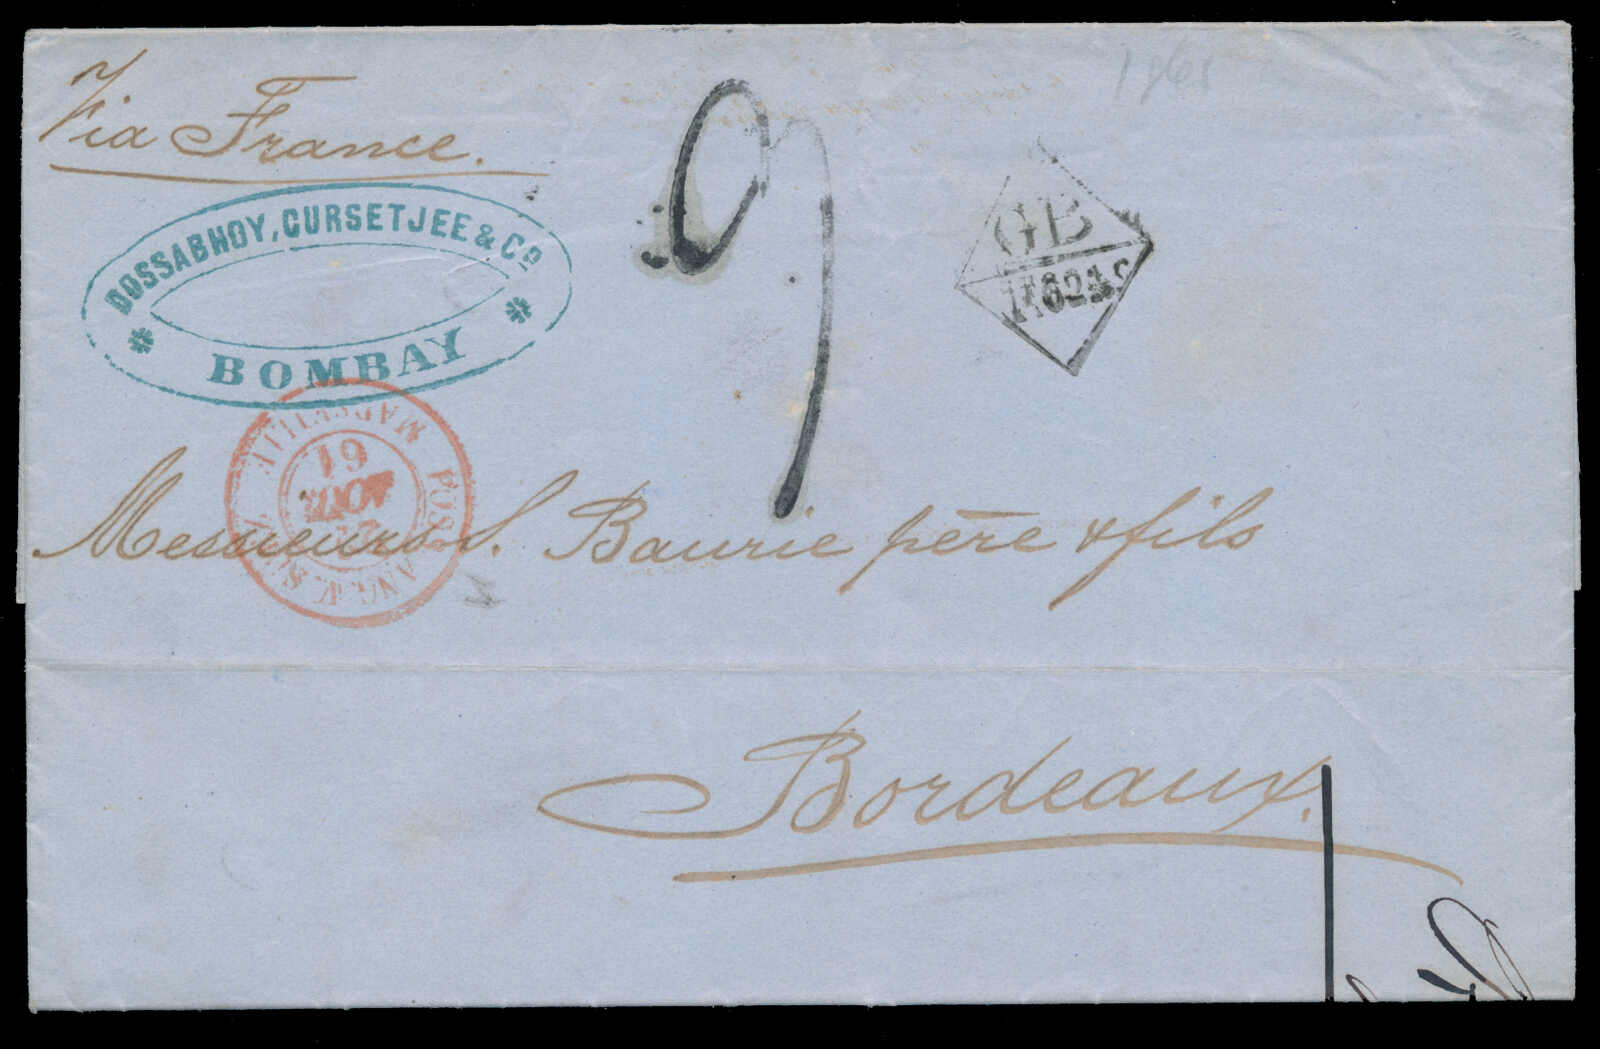 1865
Via France.
DOSSABHOY, CURSETJEE & CO.
BOMBAY
9
GB
1F62 4/10C
POSS. ANG. V. SUEZ MARSEILLE
61
AOUT
Messieurs S. Baurie père & fils
Bordeaux.